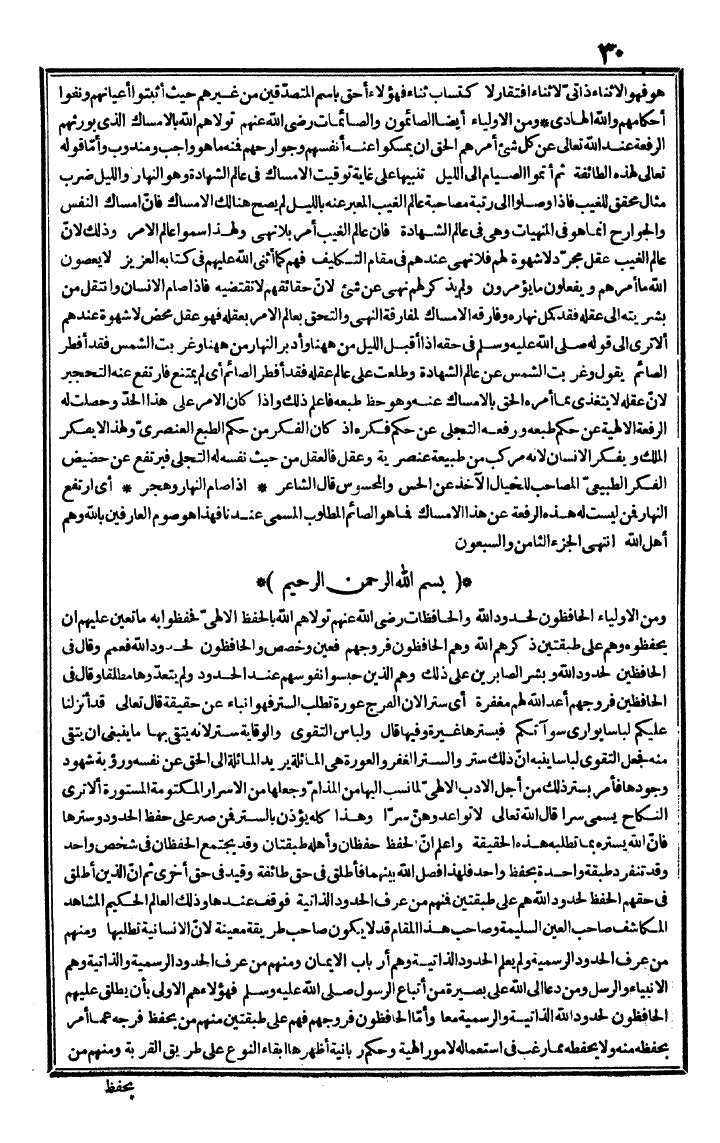 ٣٠
هو فهو الاثناء ذاتى لاثناء افتقار لا كتساب ثناء فهؤلاء أحق باسم المتصدقين من غيرهم حيث أثبتوا أعيانهم ونفوا
أحكامهم والله الهادى * ومن الاولياء أيضا الصائمون والصائمات رضى الله عنهم تولاهم الله بالامساك الذى يورثهم
الرفعة عند الله تعالى عن كل شئ أمرهم الحق ان يمسكوا عنه أنفسهم وجوارحهم فمنه ما هو واجب ومندوب وأما قوله
تعالى لهذه الطائفة ثم أتموا الصيام الى الليل تنبيها على غاية توقيت الامساك فى عالم الشهادة وهو النهار والليل ضرب
مثال محقق للغيب فاذا وصلوا الى رتبة مصاحبة عالم الغيب المعبر عنه بالليل لم يصح هنالك الامساك فان امساك النفس
والجوارح انما هو فى المنهيات وهى فى عالم الشهادة فان عالم الغيب أمر بلا نهى ولهذا سموا عالم الامر وذلك لان
عالم الغيب عقل مجرد لا شهوة لهم فلا نهى عندهم فى مقام التكليف فهم كما أثنى الله عليهم فى كتابه العزيز لا يعصون
الله ما أمرهم ويفعلون ما يؤمرون ولم يذكر لهم نهى عن شئ لان حقائقهم لا تقتضيه فاذا صام الانسان وانتقل من
بشريته الى عقله فقد كمل نهاره وفارقه الامساك لمفارقة النهى والتحق بعالم الامر بعقله فهو عقل محض لا شهوة عندهم
ألا ترى الى قوله صلى الله عليه وسلم فى حقه اذا أقبل الليل من ههنا وأدبر النهار من ههنا وغربت الشمس فقد أفطر
الصائم يقول وغربت الشمس عن عالم الشهادة وطلعت على عالم عقله فقد أفطر الصائم أى لم يمتنع فارتفع عنه التحجير
لان عقله لا يتغذى بما أمره الحق بالامساك عنه وهو حظ طبعه فاعلم ذلك واذا كان الامر على هذا الحد وحصلت له
الرفعة الالهية عن حكم طبعه ورفعه التجلى عن حكم فكره اذ كان الفكر من حكم الطبع العنصرى ولهذا لا يفكر
الملك ويفكر الانسان لانه مركب من طبيعة عنصرية وعقل فالعقل من حيث نفسه له التجلى فيرتفع عن حضيض
الفكر الطبيعى المصاحب للخيال الآخذ عن الحس والمحسوس قال الشاعر * اذا صام النهار وهجر * أى ارتفع
النهار فمن ليست له هذه الرفعة عن هذا الامساك فما هو الصائم المطلوب المسمى عندنا فهذا هو صوم العارفين بالله وهم
أهل الله انتهى الجزء الثامن والسبعون
*( بسم الله الرحمن الرحيم )*
ومن الاولياء الحافظون لحدود الله والحافظات رضى الله عنهم تولاهم الله بالحفظ الالهى فحفظوا به ما تعين عليهم ان
يحفظوه وهم على طبقتين ذكرهم الله وهم الحافظون فروجهم فعين وخصص والحافظون لحدود الله فعمم وقال فى
الحافظين لحدود الله وبشر الصابرين على ذلك وهم الذين حبسوا نفوسهم عند الحدود ولم يتعدوها مطلقا وقال فى
الحافظين فروجهم أعد الله لهم مغفرة أى سترا لان الفرج عورة تطلب الستر فهو انباء عن حقيقة قال تعالى قد أنزلنا
عليكم لباسا يوارى سوآتكم فيسترها غيرة وفيها قال ولباس التقوى والوقاية ستر لانه يتقى بها ما ينبغى ان يتقى
منه فجعل التقوى لباسا ينبه ان ذلك ستر والستر الغفر والعورة هى المائلة يريد المائلة الى الحق عن نفسه ورؤية شهود
وجودها فأمر بستر ذلك من أجل الادب الالهى لما نسب اليها من المذام وجعلها من الاسرار المكتومة المستورة ألا ترى
النكاح يسمى سرا قال الله تعالى لا تواعدوهن سرا وهذا كله يؤذن بالستر فمن صبر على حفظ الحدود وسترها
فان الله يستره بما تطلبه هذه الحقيقة واعلم ان الحفظ حفظان وأهله طبقتان وقد يجتمع الحفظان فى شخص واحد
وقد تنفرد طبقة واحدة بحفظ واحد فلهذا فصل الله بينهما فأطلق فى حق طائفة وقيد فى حق أخرى ثم ان الذين أطلق
فى حقهم الحفظ لحدود الله هم على طبقتين فمنهم من عرف الحدود الذاتية فوقف عندها وذلك العالم الحكيم المشاهد
المكاشف صاحب العين السليمة وصاحب هذا المقام قد لا يكون صاحب طريقة معينة لان الانسانية تطلبها ومنهم
من عرف الحدود الرسمية ولم يعلم الحدود الذاتية وهم أرباب الايمان ومنهم من عرف الحدود الرسمية والذاتية وهم
الانبياء والرسل ومن دعا الى الله على بصيرة من أتباع الرسول صلى الله عليه وسلم فهؤلاء هم الاولى بأن يطلق عليهم
الحافظون لحدود الله الذاتية والرسمية معا وأما الحافظون فروجهم فهم على طبقتين منهم من يحفظ فرجه عما أمر
بحفظه منه ولا يحفظه مما رغب فى استعماله لامور الهية وحكم ربانية أظهرها ابقاء النوع على طريق القربة ومنهم من
يحفظ